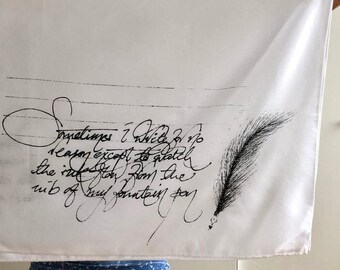 Sometimes I write for no
reason except to watch
the ink flow from the
nib of my fountain pen